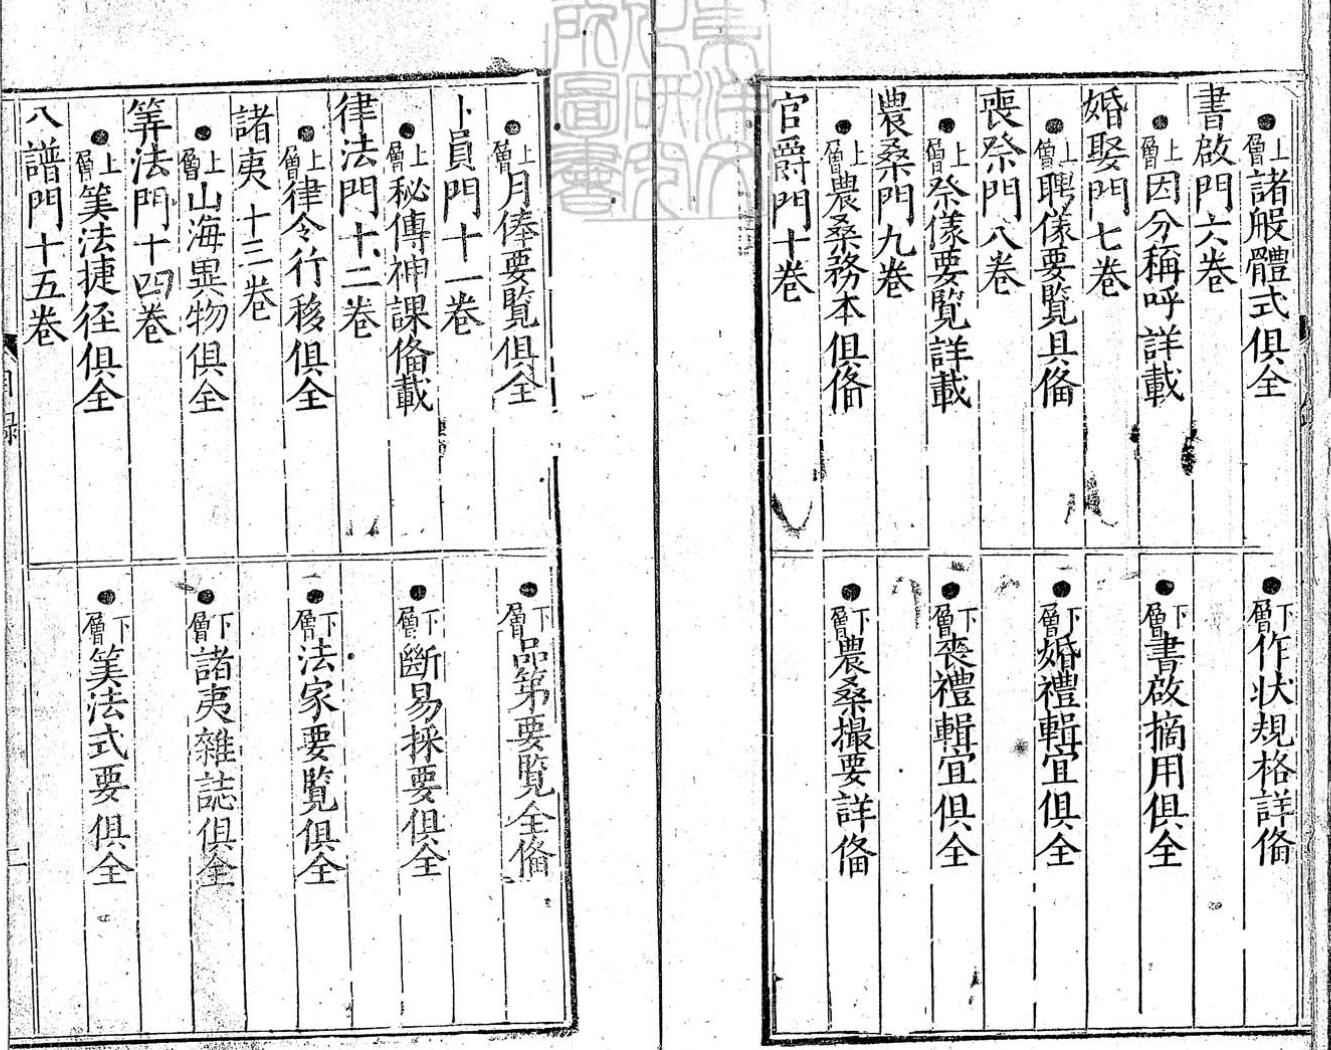 上層諸般體式俱全
下層作狀規格詳俻
書啟門六卷
上層因分稱呼詳載
下層書啟摘用俱全
婚娶門七卷
上層聘儀要覽具俻
下層婚禮輯宜俱全
喪祭門八卷
上層祭儀要覽詳載
下層喪禮輯宜俱全
農桑門九卷
上層農桑務本俱俻
下層農桑撮要詳俻
官爵門十卷
上層月俸要覽俱全
下層品第要覽全俻
卜員門十一卷
上層秘傳神課俻載
下層斷易採要俱全
律法門十二卷
上層律令行移俱全
下層法家要覽俱全
諸夷十三卷
上層山海異物俱全
下層諸夷雜誌俱全
筭法門十四卷
上層筭法捷径俱全
下層筭法式要俱全
八譜門十五卷
目錄
二
東洋文化研究所圖書